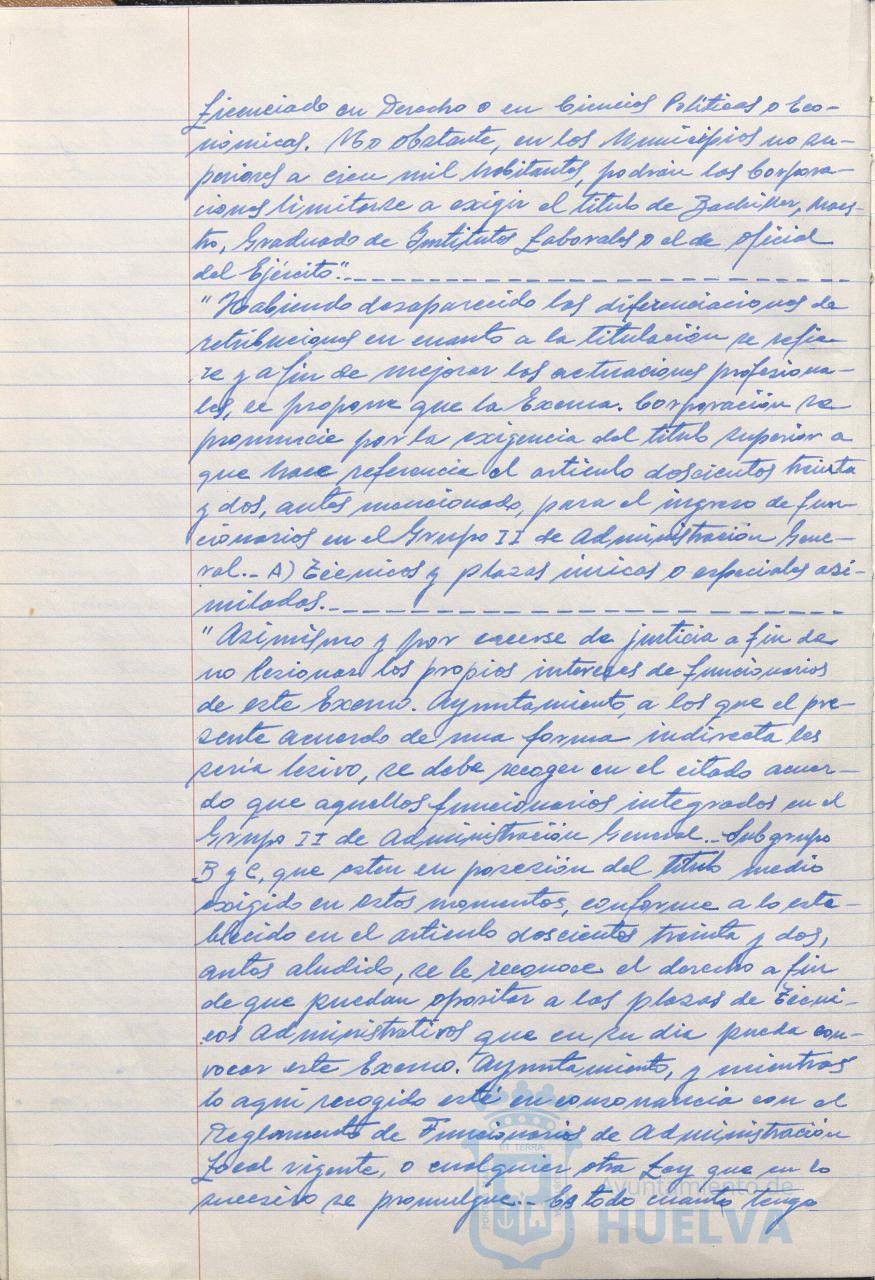 Licenciado en Derecho o en Ciencias Políticas o Eco-
nómicas. No obstante, en los Municipios no su-
periores a cien mil habitantes, podrán las Corpora-
ciones limitarse a exigir el título de Bachiller, Maes-
tro, Graduado de Institutos Laborales o el de oficial
del Ejército".
"Habiendo desaparecido las diferenciaciones de
retribuciones en cuanto a la titulación se refie-
re y a fin de mejorar las actuaciones profesiona-
les, se propone que la Excma. Corporación se
pronuncie por la exigencia del título superior a
que hace referencia el artículo doscientos treinta
y dos, antes mencionado, para el ingreso de fun-
cionarios en el Grupo II de Administración Gene-
ral.- A) Técnicos y plazas únicas o especiales asi-
miladas.
"Asimismo y por hacerse de justicia a fin de
no lesionar los propios intereses de funcionarios
de este Excmo. Ayuntamiento, a los que el pre-
sente acuerdo de una forma indirecta les
sería lesivo, se debe recoger en el citado acuer-
do que aquellos funcionarios integrados en el
Grupo II de Administración General.- Subgrupo
B y C, que esten en posesión del título medio
exigido en estos momentos, conforme a lo esta-
blecido en el artículo doscientos treinta y dos,
antes aludido, se le reconoce el derecho a fin
de que puedan opositar a las plazas de Técni-
cos Administrativos que en su día pueda con-
vocar este Excmo. Ayuntamiento, y mientras
lo aquí recogido esté en consonancia con el
Reglamento de Funcionarios de Administración
Local vigente, o cualquier otra Ley que en lo
sucesivo se promulgue.- Es todo cuanto tengo
ET TERRÆ
Ayuntamiento de
HUELVA